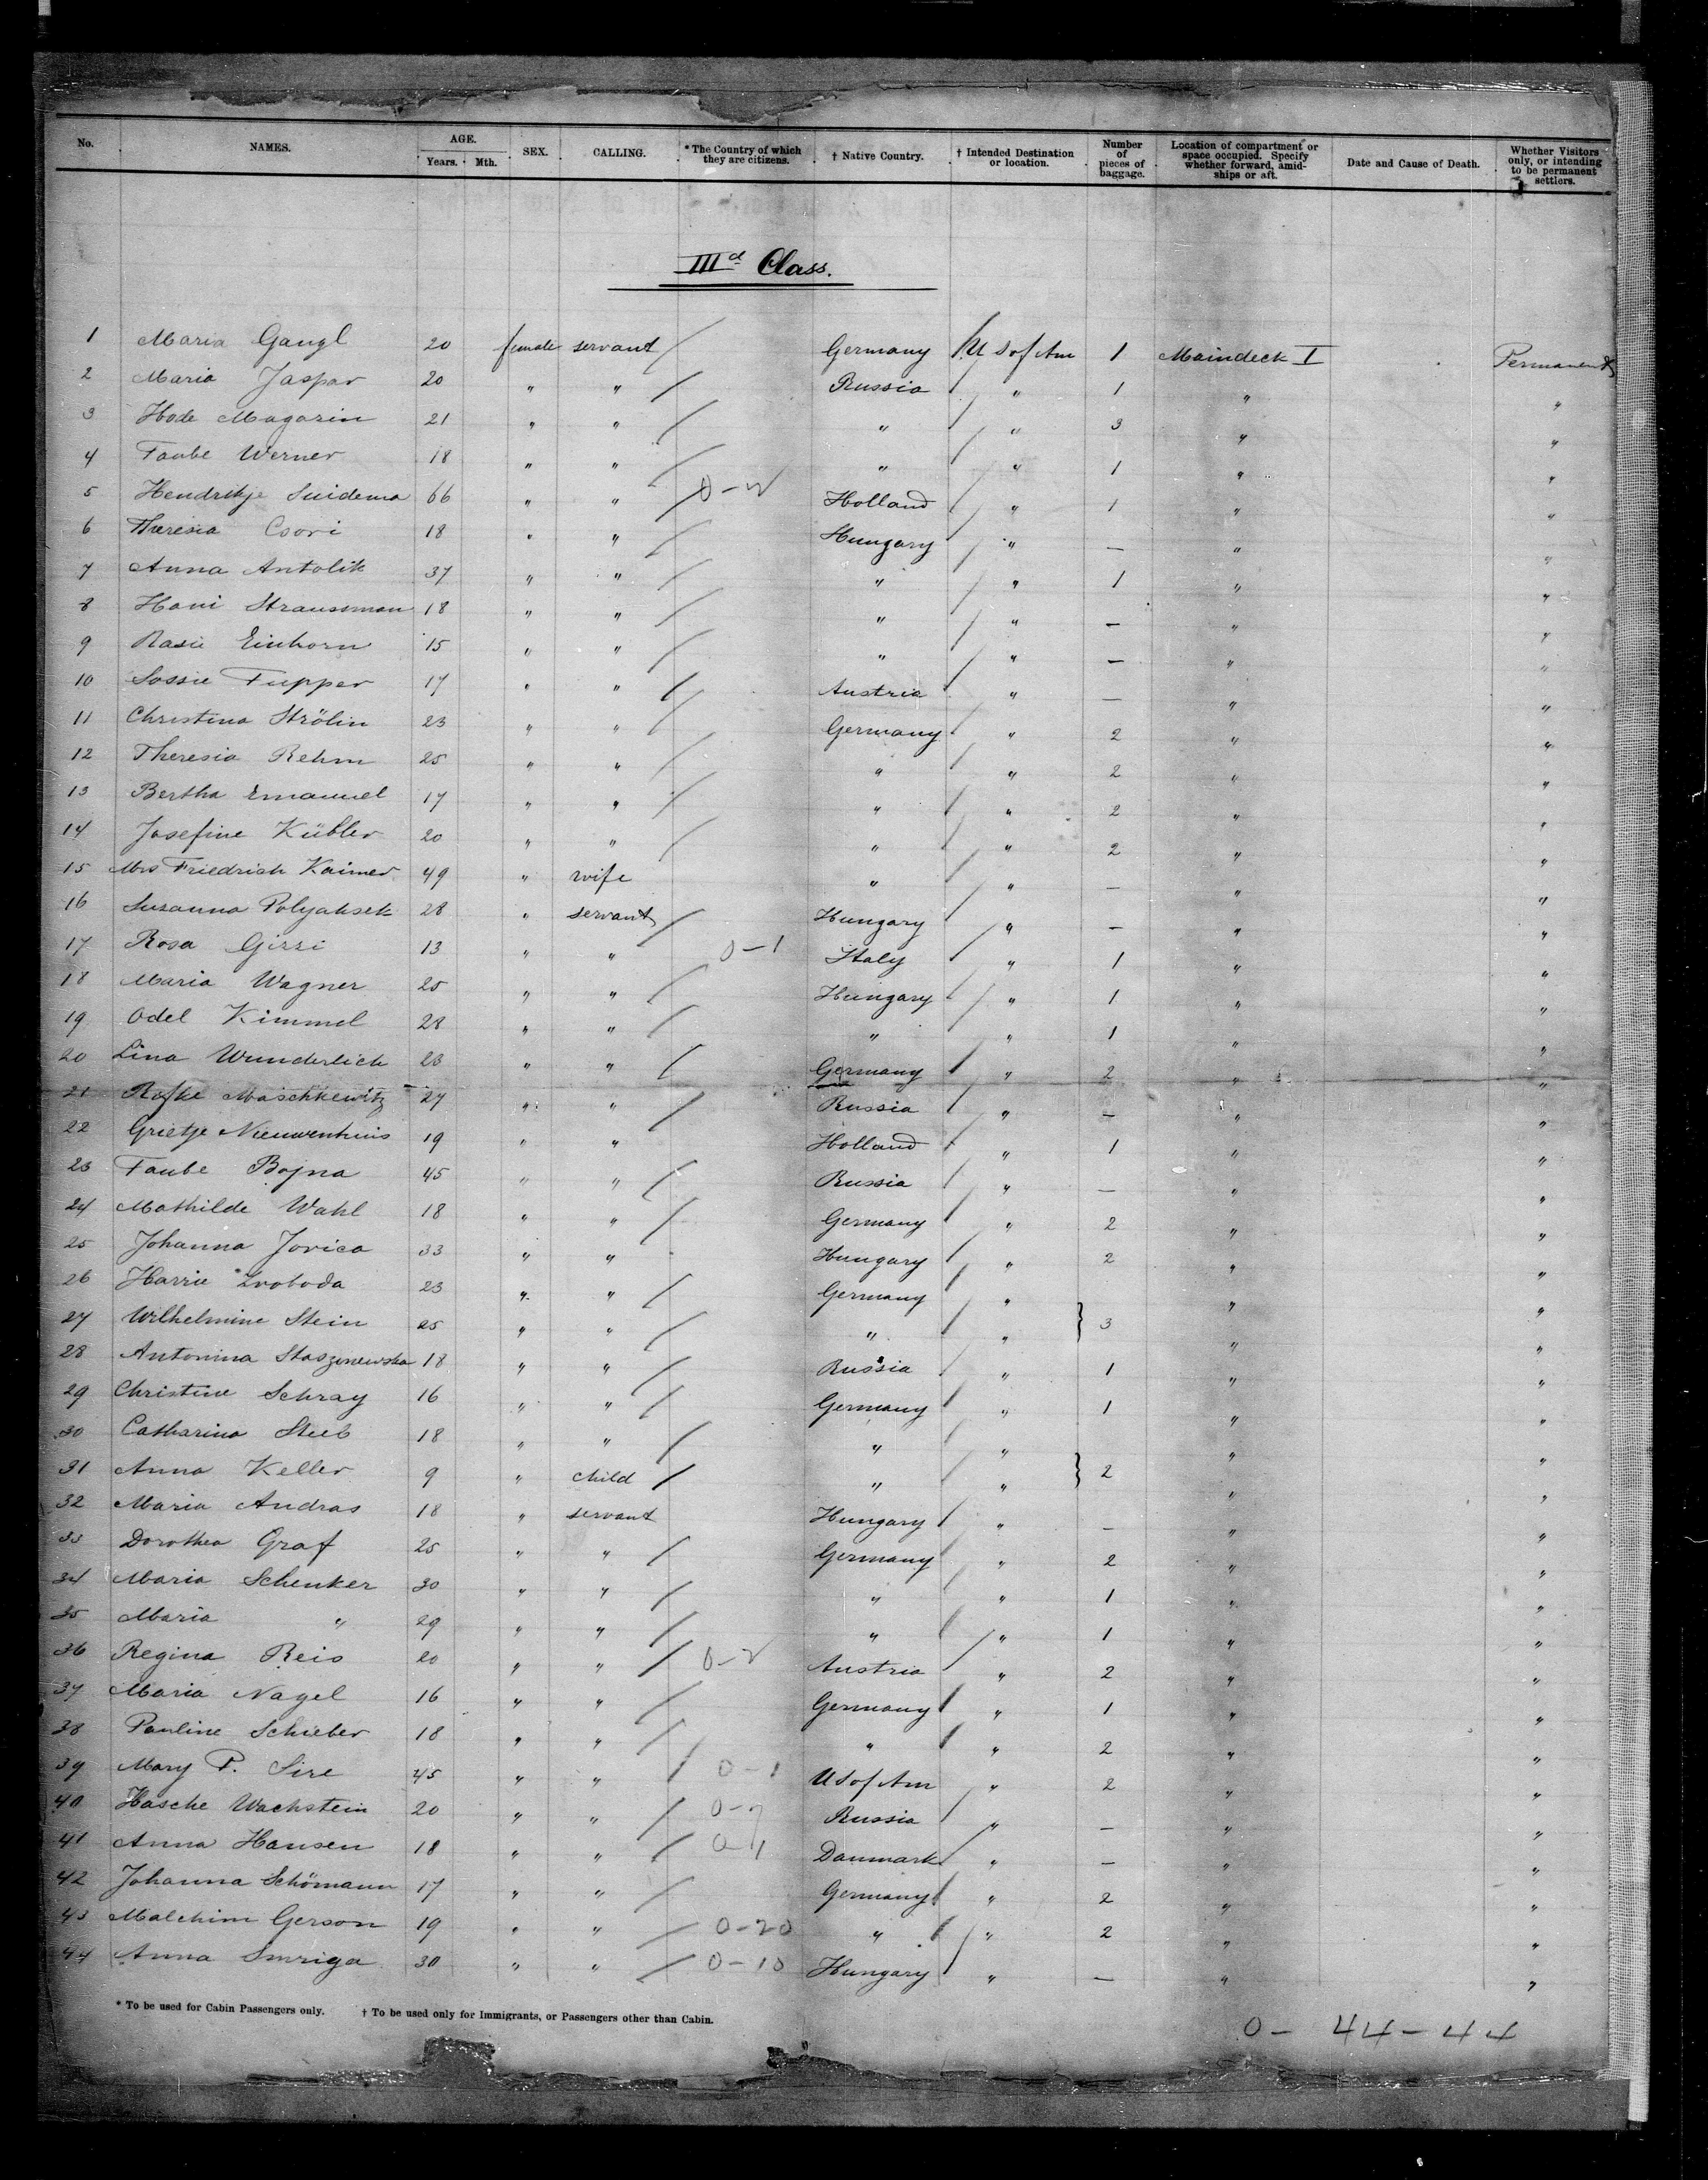 No. NAMES. AGE. Years. Mth. SEX. CALLING. * The Country of which they are citizens. † Native Country. † Intended Destination or location. Number of pieces of baggage. Location of compartment or space occupied. Specify whether forward, amidships or aft. Date and Cause of Death. Whether Visitors only, or intending to be permanent settlers.
IIId Class.
1 Maria Gangl 20 female servant Germany U S of Am 1 Maindeck I Permanent
2 Maria Jaspar 20 " " Russia " 1 " "
3 Hode Magarin 21 " " " " 3 " "
4 Taube Werner 18 " " " " 1 " "
5 Hendrikje Suidema 66 " " Holland " 1 " "
6 Theresia Csori 18 " " Hungary " — " "
7 Anna Antolik 37 " " " " 1 " "
8 Hani Straussman 18 " " " " — " "
9 Rasie Einhorn 15 " " " " — " "
10 Sossie Tupper 17 " " Austria " — " "
11 Christina Strölin 23 " " Germany " 2 " "
12 Theresia Rehm 25 " " " " 2 " "
13 Bertha Emanuel 17 " " " " 2 " "
14 Josefine Kübler 20 " " " " 2 " "
15 Mrs Friedrich Kaimer 49 " wife " " — " "
16 Susanna Polyaksek 28 " servant Hungary " — " "
17 Rosa Girri 13 " " 0-1 Italy " 1 " "
18 Maria Wagner 25 " " Hungary " 1 " "
19 Odel Kimmel 28 " " " " 1 " "
20 Lina Wunderlich 23 " " Germany " 2 " "
21 Rofke Maschkewitz 27 " " Russia " — " "
22 Grietje Nieuwenhuis 19 " " Holland " 1 " "
23 Taube Bojna 45 " " Russia " — " "
24 Mathilde Wahl 18 " " Germany " 2 " "
25 Johanna Jorica 33 " " Hungary " 2 " "
26 Harrie Svoboda 23 " " Germany " " "
27 Wilhelmine Stein 25 " " " " } 3 " "
28 Antonina Staszenewska 18 " " Russia " 1 " "
29 Christine Schray 16 " " Germany " 1 " "
30 Catharina Steeb 18 " " " " " "
31 Anna Keller 9 " child " " } 2 " "
32 Maria Andras 18 " servant Hungary " — " "
33 Dorothea Graf 25 " " Germany " 2 " "
34 Maria Schenker 30 " " " " 1 " "
35 Maria " 29 " " " " 1 " "
36 Regina Reis 20 " " 0-2 Austria " 2 " "
37 Maria Nagel 16 " " Germany " 1 " "
38 Pauline Schieber 18 " " " " 2 " "
39 Mary P. Sire 45 " " 0-1 U S of Am " 2 " "
40 Hasche Wachstein 20 " " Russia " — " "
41 Anna Hansen 18 " " 0-1 Danmark " — " "
42 Johanna Schömann 17 " " Germany " 2 " "
43 Malchim Gerson 19 " " 0-20 " " 2 " "
44 Anna Smriga 30 " " 0-10 Hungary " — " "
* To be used for Cabin Passengers only. † To be used only for Immigrants, or Passengers other than Cabin.
0- 44-44